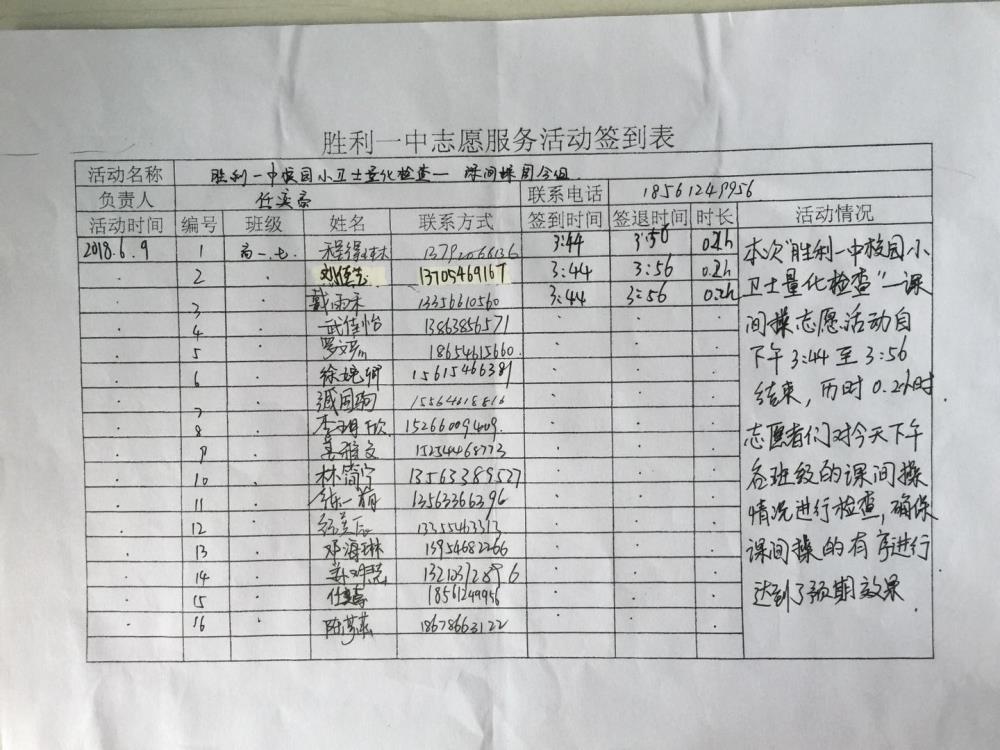 胜利一中志愿服务活动签到表
活动名称 胜利一中校园小卫士量化检查— 课间操
负责人 联系电话 18561249956
活动时间 编号 班级 姓名 联系方式 签到时间 签退时间 时长 活动情况
2018.6.9 1 高一.七. 3:44 3:56 0.2h
· 2 · 13705469167 3:44 3:56 0.2h
· 3 · 戴雨禾 13356610560 3:44 3:56 0.2h
· 4 · 武佳怡 13863856571 · · ·
· 5 · 18654615660. · · ·
· 6 · 徐婉卿 15615466381 · · ·
· 7 · 15564618816 · · ·
· 8 · 15266009409. · · ·
· 9 · 15254468773 · · ·
· 10 · 林简宁 13563389527 · · ·
· 11 · 13563366396 · · ·
· 12 · 13355463313 · · ·
· 13 · 邓海琳 15954682266 · · ·
· 14 · 13210312896 · · ·
· 15 · 18561249956 · · ·
· 16 · 18678663122 · · ·
本次“胜利一中校园小
卫士量化检查”—课
间操志愿活动自
下午3:44至3:56
结束，历时0.2小时.
志愿者们对今天下午
各班级的课间操
情况进行检查，确保
课间操的有序进行
达到了预期效果